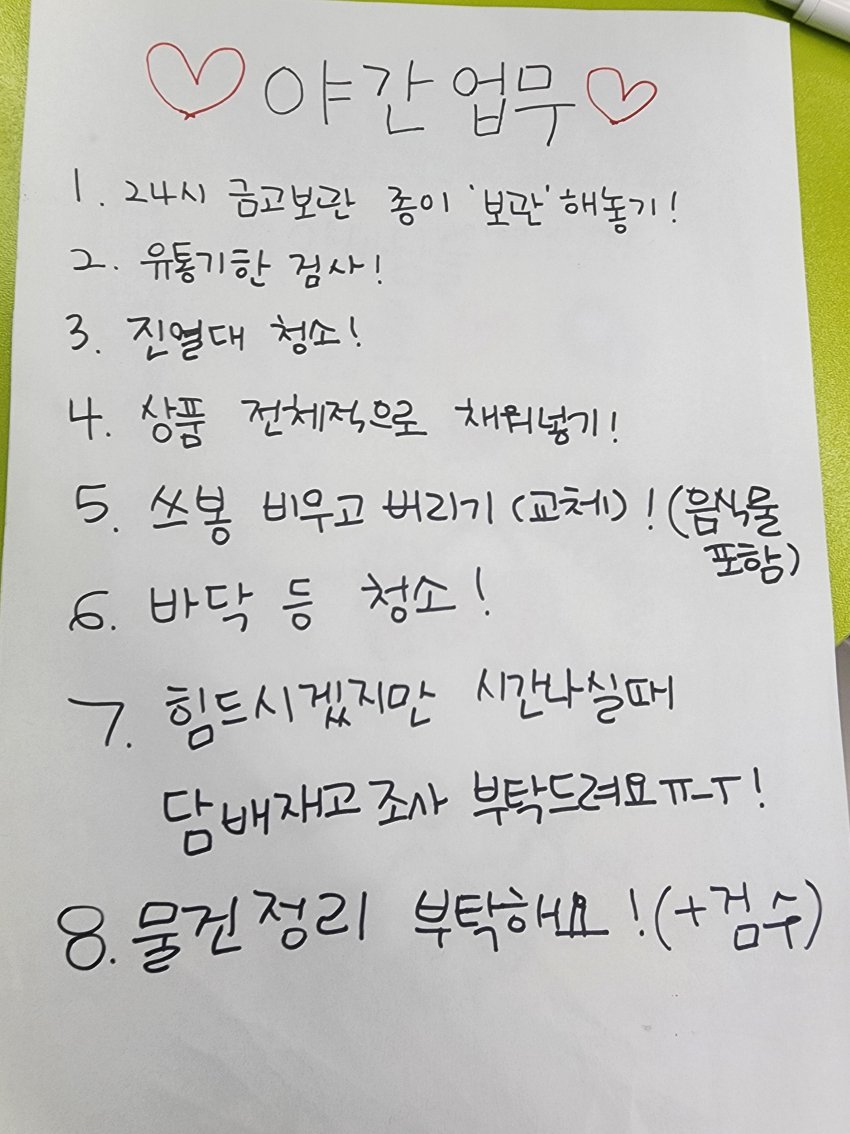 ♡야간업무♡
1. 24시 금고보관 종이 '보관' 해놓기!
2. 유통기한 검사!
3. 진열대 청소!
4. 상품 전체적으로 채워넣기!
5. 쓰봉 비우고 버리기 (교체)! (음식물
포함)
6. 바닥 등 청소!
7. 힘드시겠지만 시간나실때
담배재고조사 부탁드려요ㅠ-ㅜ!
8. 물건정리 부탁해요! (+검수)